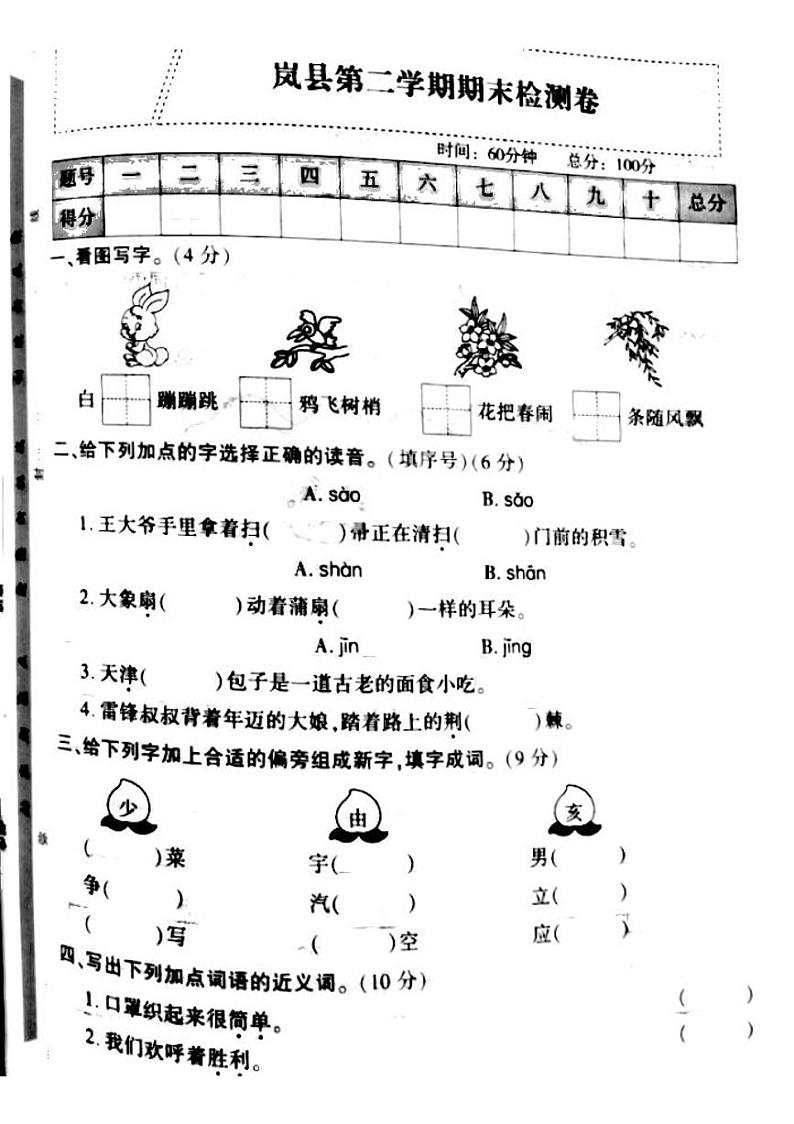 岚县第二学期期末检测卷
时间：60分钟 总分：100分
题号 一 二 三 四 五 六 七 八 九 十 总分
得分
一、看图写字。(4 分)
白 蹦蹦跳 鸦飞树梢 花把春闹 条随风飘
二、给下列加点的字选择正确的读音。(填序号)(6 分)
A. sào B. sǎo
1. 王大爷手里拿着扫( )帚正在清扫( )门前的积雪。
A. shàn B. shān
2. 大象扇( )动着蒲扇( )一样的耳朵。
A. jīn B. jīng
3. 天津( )包子是一道古老的面食小吃。
4. 雷锋叔叔背着年迈的大娘,踏着路上的荆( )棘。
三、给下列字加上合适的偏旁组成新字,填字成词。(9 分)
少 由 亥
( )菜 宇( ) 男( )
争( ) 汽( ) 立( )
( )写 ( )空 应( )
四、写出下列加点词语的近义词。(10 分)
1. 口罩织起来很简单。 ( )
2. 我们欢呼着胜利。 ( )